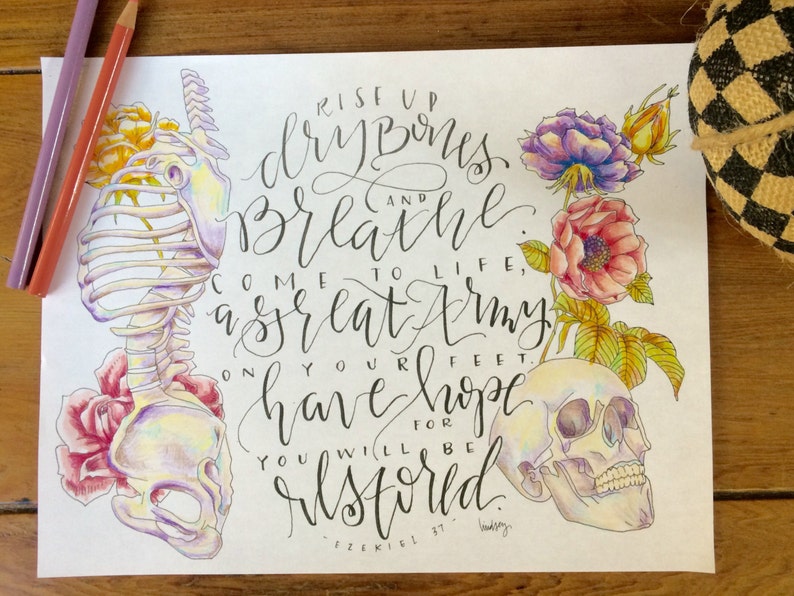 RISE UP
dry Bones
AND
Breathe.
COME TO LIFE,
a great Army
ON YOUR FEET.
have hope
FOR
YOU WILL BE
restored.
"EZEKIEL 37"
lindsey